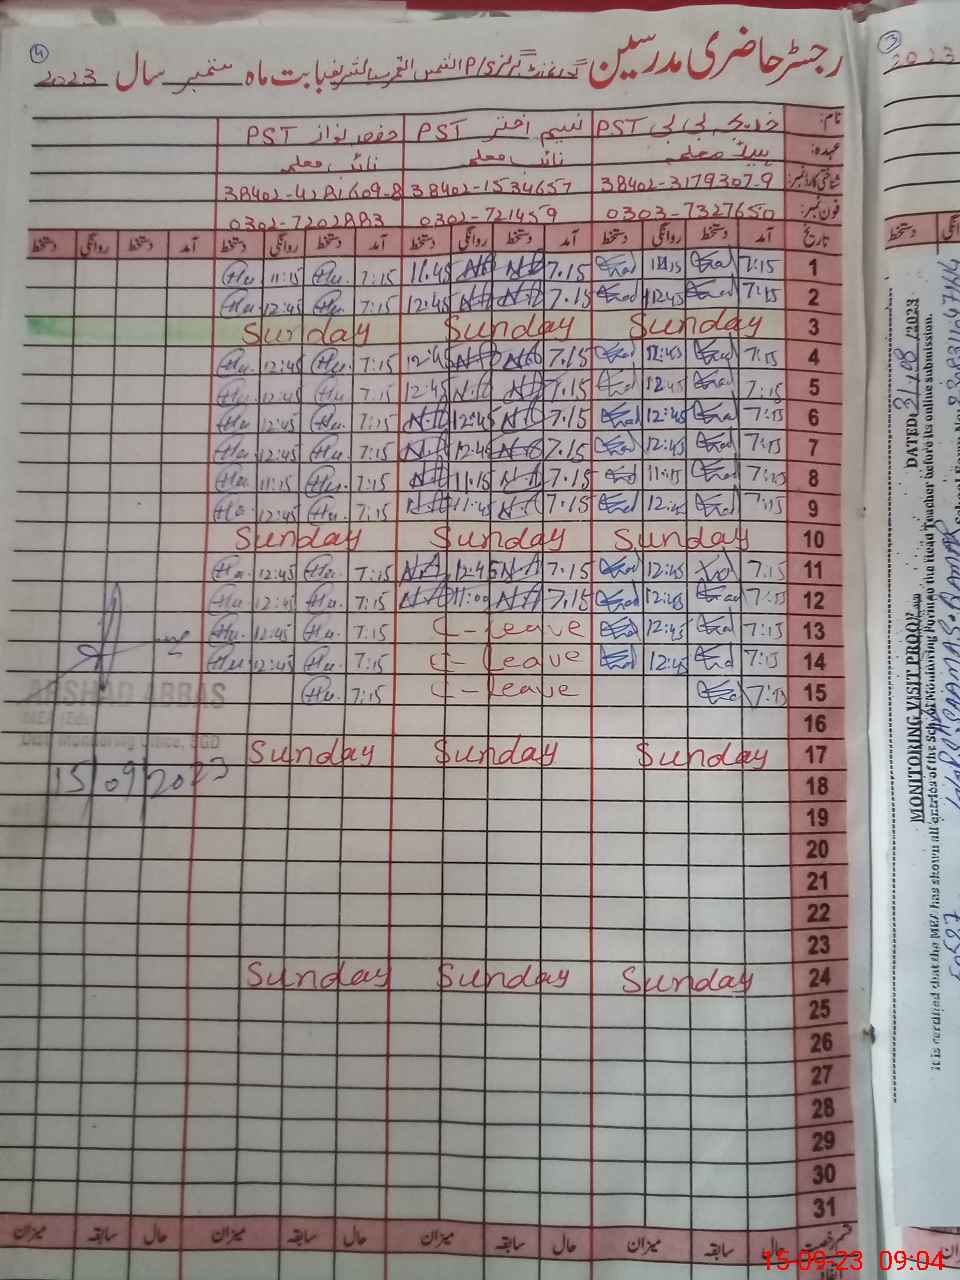 4
رجسٹر حاضری مدرسین گورنمنٹ گرلز P/S بابت ماہ ستمبر سال 2023
نام: خدیجہ بی بی PST نسیم اختر PST حفصہ نواز PST
عہدہ: ہیڈ معلمہ نائب معلمہ نائب معلمہ
شناختی کارڈ نمبر: 38402-3179307-9 38402-1534657 38402-4281609-8
فون نمبر: 0303-7327650 0302-721459 0302-7202883
تاریخ آمد دستخط روانگی دستخط آمد دستخط روانگی دستخط آمد دستخط روانگی دستخط آمد دستخط روانگی دستخط
1 7:15 11:15 7.15 11.45 7:15 11:15
2 7:15 12:45 7.15 12:45 7:15 12:45
3 Sunday Sunday Sunday
4 7:15 12:45 7.15 12:45 7:15 12:45
5 7:15 12:45 7.15 12:45 7:15 12:45
6 7:15 12:45 7.15 12:45 7:15 12:45
7 7:15 12:45 7.15 12:45 7:15 12:45
8 7:15 11:15 7.15 11.15 7:15 11:15
9 7:15 12:45 7.15 11:45 7:15 12:45
10 Sunday Sunday Sunday
11 7:15 12:45 7.15 12:45 7:15 12:45
12 7:15 12:45 7.15 11:00 7:15 12:45
13 7:15 12:45 C-leave 7:15 12:45
14 7:15 12:45 C-leave 7:15 12:45
15 7:15 C-leave 7:15
16
17 Sunday Sunday Sunday
18
19
20
21
22
23
24 Sunday Sunday Sunday
25
26
27
28
29
30
31
ARSHAD ABBAS
MEA (Edu)
Distt Monitoring Office, SGD
15/09/2023
قسم رخصت حال سابقہ میزان حال سابقہ میزان حال سابقہ میزان حال سابقہ میزان
3
2023
دستخط
MONITORING VISIT PROOF
DATED: 21/08/2023
It is certified that the MEA has shown all entries of the School Monitoring Form to the Head Teacher before its online submission.
15-09-23 09:04